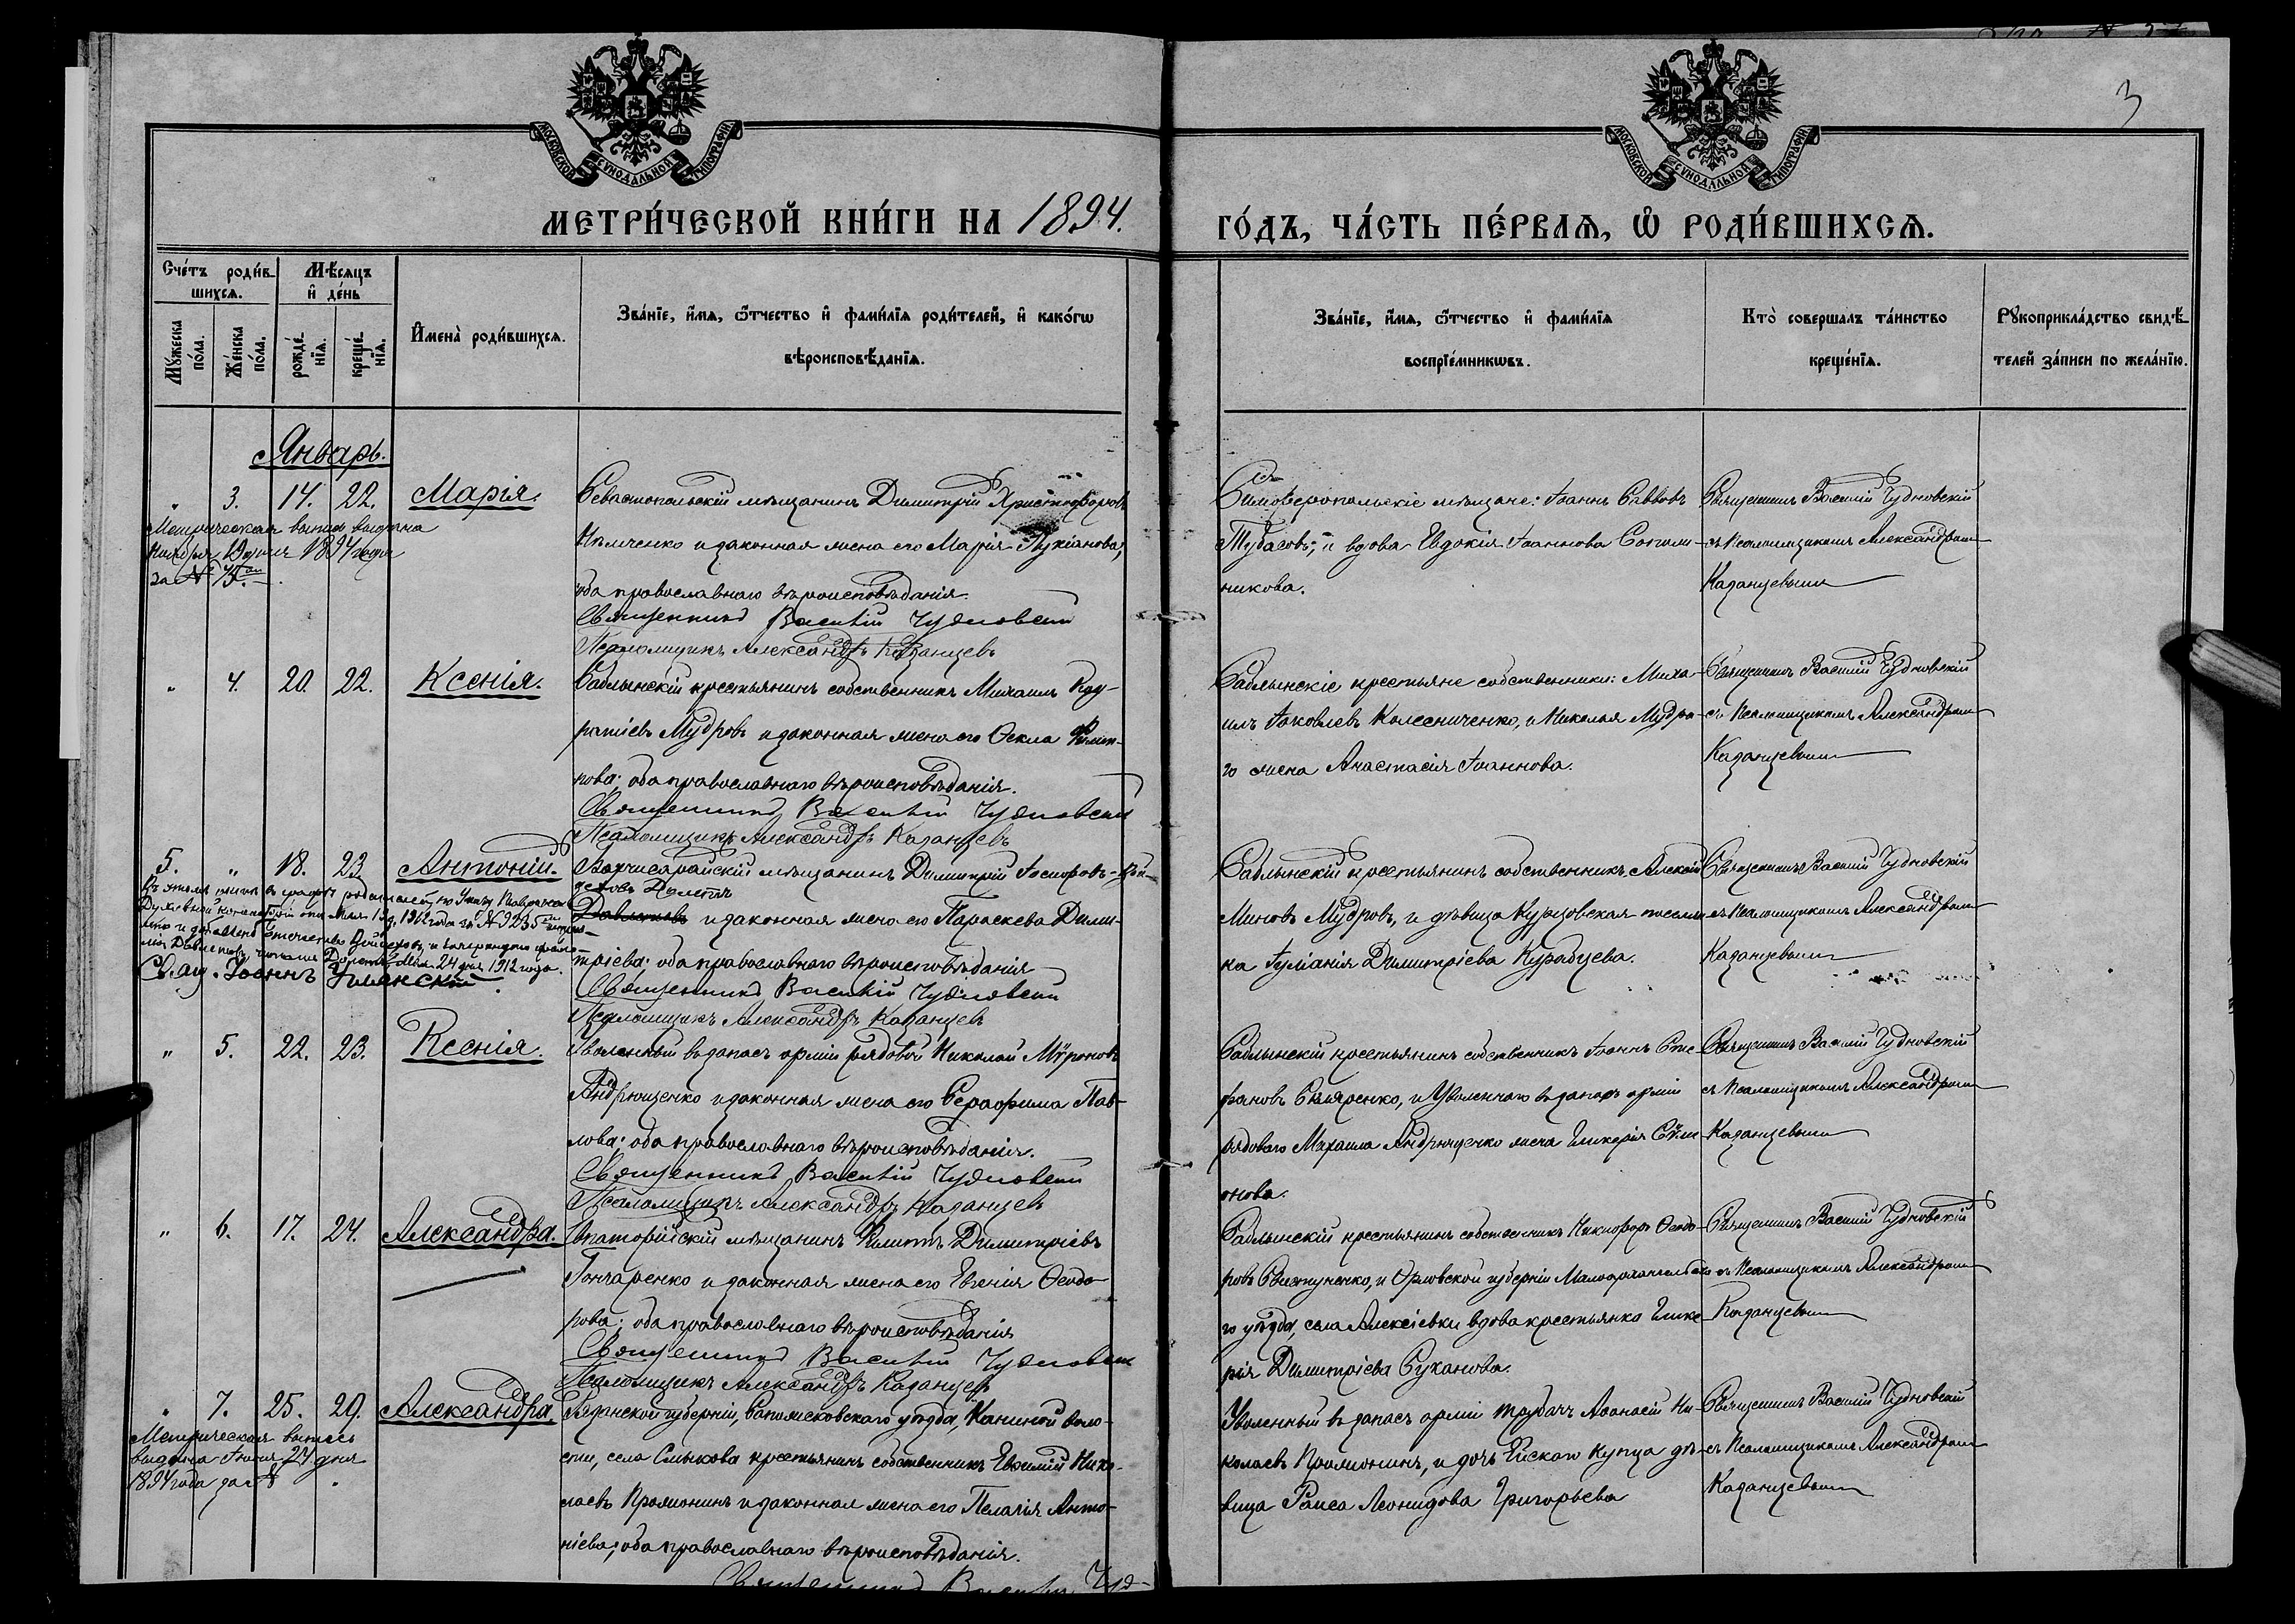 3
МОСКОВСКОЙ СѴНОДАЛЬНОЙ ТИПОГРАФІИ
МОСКОВСКОЙ СѴНОДАЛЬНОЙ ТИПОГРАФІИ
МЕТРИ́ЧЕСКОЙ КНИ́ГИ НА 1894.
ГО́ДЪ, ЧА́СТЬ ПЕ́РВАѦ, Ѡ҆ РОДИ́ВШИХСѦ.
Сче́тъ роди́в-
шихсѧ.
Мѣ́сѧцъ
и҆ де́нь
Мꙋ́жеска
по́ла.
Же́нска
по́ла.
рожде́-
нїѧ.
креще́-
нїѧ.
И҆мена̀ роди́вшихсѧ.
Зва́нїе, и҆́мѧ, ѻ҆́тчество и҆ фами́лїѧ роди́телей, и҆ како́гѡ
вѣроисповѣ́данїѧ.
Зва́нїе, и҆́мѧ, ѻ҆́тчество и҆ фами́лїѧ
воспрїе́мникѡвъ.
Кто̀ соверша́лъ та́инство
креще́нїѧ.
Рꙋкоприкла́дство свидѣ́-
телей за́писи по жела́нїю.
Январь.
" 3. 14. 22. Марія.
Метрическая выпись выдана
1894 года
за № 75
Севастопольскій мѣщанинъ Димитрій Христофоровъ
Нѣмченко и законная жена его Марія Лукіанова,
оба православнаго вѣроисповѣданія.
Священникъ Василій Чудновскій
Псаломщикъ Александръ Казанцевъ
Симферопольскіе мѣщане: Іоаннъ Савовъ
и вдова Евдокія Іоаннова
никова.
Священникъ Василій Чудновскій
съ Псаломщикомъ Александромъ
Казанцевымъ
" 4. 20. 22. Ксенія.
Саблынскій крестьянинъ собственникъ Михаилъ Код-
ратіевъ Мудровъ и законная жена его Ѳекла Филип-
пова; оба православнаго вѣроисповѣданія.
Священникъ Василій Чудновскій
Псаломщикъ Александръ Казанцевъ
Саблынскіе крестьяне собственники: Миха-
илъ Іаковлевъ Колесниченко, и Николая Мудро-
го жена Анастасія Іоаннова.
Священникъ Василій Чудновскій
съ Псаломщикомъ Александромъ
Казанцевымъ
5. " 18. 23. Антоній.
Въ этомъ актѣ въ графѣ родителей, по Указу Таврической
Духовной Консисторіи отъ Мая 1912 года за № 9235
24 дня 1912 года.
Свящ. Іоаннъ
Бахчисарайскій мѣщанинъ Димитрій Іосифовъ-
и законная жена его Параскева Дими-
тріева; оба православнаго вѣроисповѣданія
Священникъ Василій Чудновскій
Псаломщикъ Александръ Казанцевъ
Саблынскій крестьянинъ собственникъ Алексій
Миновъ Мудровъ, и дѣвица Курцовская поселян-
ка Іуліанія Димитріева Курабцева.
Священникъ Василій Чудновскій
съ Псаломщикомъ Александромъ
Казанцевымъ
" 5. 22. 23. Ксенія.
Уволенный въ запасъ арміи рядовой Николай Мѵроновъ
Андрющенко и законная жена его Серафима Пав-
лова; оба православнаго вѣроисповѣданія.
Священникъ Василій Чудновскій
Псаломщикъ Александръ Казанцевъ
Саблынскій крестьянинъ собственникъ Іоаннъ Сте-
фановъ и Уволеннаго въ запасъ арміи
рядового Михаила Андрющенко жена Гликерія Сѵме-
онова.
Священникъ Василій Чудновскій
съ Псаломщикомъ Александромъ
Казанцевымъ
" 6. 17. 24. Александра.
Евпаторійскій мѣщанинъ Филиппъ Димитріевъ
Гончаренко и законная жена его Евгенія Ѳеодо-
рова; оба православнаго вѣроисповѣданія
Священникъ Василій Чудновскій
Псаломщикъ Александръ Казанцевъ
Саблынскій крестьянинъ собственникъ Никифоръ Ѳеодо-
ровъ и Орловской губерніи Малоархангельска-
го уѣзда, села Алексѣевки вдова крестьянка Глике-
рія Димитріева Суханова.
Священникъ Василій Чудновскій
съ Псаломщикомъ Александромъ
Казанцевымъ
" 7. 25. 29. Александра.
Метрическая выпись
выдана Іюня 24 дня
1894 года за №
Рязанской губерніи, Сапожковскаго уѣзда, Каниной воло-
сти, села Смыкова крестьянинъ собственникъ Евѳимій Нико-
лаевъ Промонинъ и законная жена его Пелагія Анто-
ніева; оба православнаго вѣроисповѣданія.
Священникъ Василій Чуд-
Уволенный въ запасъ арміи трубачъ Аѳанасій Ни-
колаевъ Промонинъ, и дочь Ейскаго купца дѣ-
вица Раиса Леонидова Григорьева
Священникъ Василій Чудновскій
съ Псаломщикомъ Александромъ
Казанцевымъ